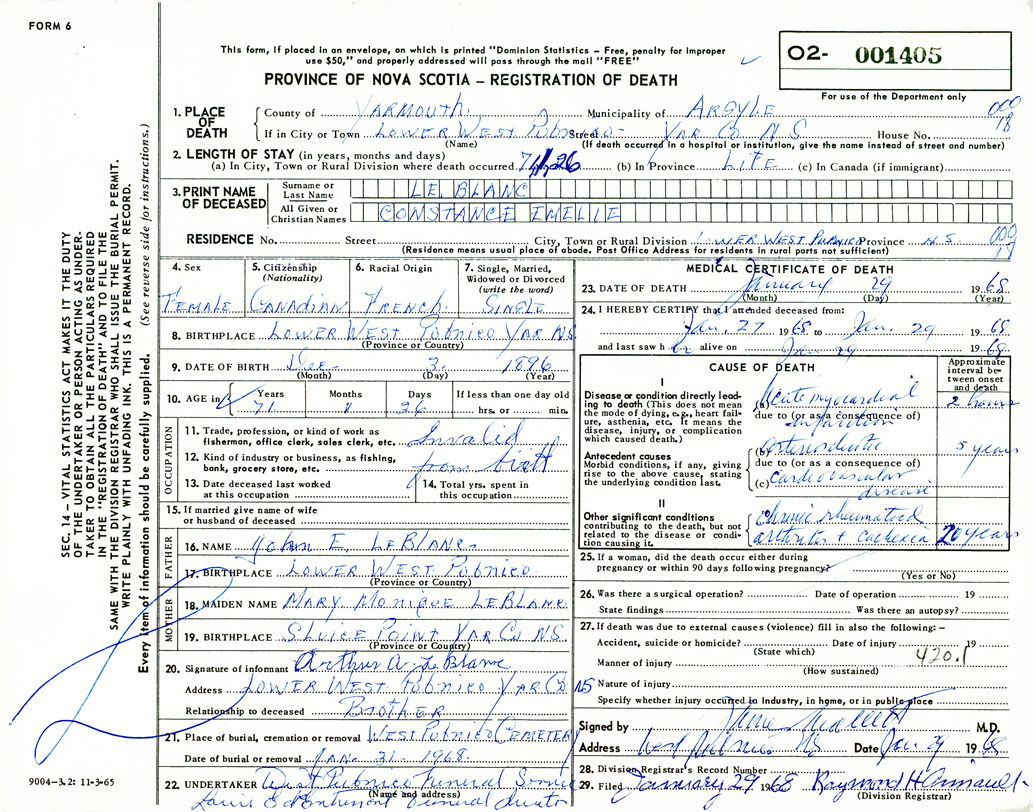 FORM 6
This form, if placed in an envelope, on which is printed "Dominion Statistics – Free, penalty for improper
use $50," and properly addressed will pass through the mail "FREE"
O2- 001405
For use of the Department only
PROVINCE OF NOVA SCOTIA – REGISTRATION OF DEATH
SEC. 14 – VITAL STATISTICS ACT MAKES IT THE DUTY
OF THE UNDERTAKER OR PERSON ACTING AS UNDER-
TAKER TO OBTAIN ALL THE PARTICULARS REQUIRED
IN THE "REGISTRATION OF DEATH" AND TO FILE THE
SAME WITH THE DIVISION REGISTRAR WHO SHALL ISSUE THE BURIAL PERMIT.
WRITE PLAINLY WITH UNFADING INK. THIS IS A PERMANENT RECORD.
Every item of information should be carefully supplied. (See reverse side for instructions.)
1. PLACE OF DEATH
County of YARMOUTH. Municipality of ARGYLE
000
18
If in City or Town LOWER WEST PUBNICO - Street YAR CO N S House No.
(Name) (If death occurred in a hospital or institution, give the name instead of street and number)
2. LENGTH OF STAY (in years, months and days)
(a) In City, Town or Rural Division where death occurred (b) In Province LIFE (c) In Canada (if immigrant)
3. PRINT NAME OF DECEASED
Surname or Last Name LE BLANC
All Given or Christian Names CONSTANCE EMELIE
RESIDENCE No. Street City, Town or Rural Division LOWER WEST PUBNICO Province N.S. 000
17
(Residence means usual place of abode. Post Office Address for residents in rural parts not sufficient)
4. Sex
FEMALE
5. Citizenship (Nationality)
CANADIAN
6. Racial Origin
FRENCH
7. Single, Married, Widowed or Divorced (write the word)
SINGLE
8. BIRTHPLACE LOWER WEST PUBNICO YAR NS
(Province or Country)
9. DATE OF BIRTH Dec - 3 1896
(Month) (Day) (Year)
10. AGE in Years Months Days If less than one day old
71 1 26 hrs. or min.
OCCUPATION
11. Trade, profession, or kind of work as
fisherman, office clerk, sales clerk, etc. Invalid
12. Kind of industry or business, as fishing,
bank, grocery store, etc. from birth
13. Date deceased last worked
at this occupation
14. Total yrs. spent in
this occupation
15. If married give name of wife
or husband of deceased
FATHER
16. NAME John E. LeBlanc -
17. BIRTHPLACE LOWER WEST PUBNICO
(Province or Country)
MOTHER
18. MAIDEN NAME MARY MONIQUE LEBLANC
19. BIRTHPLACE SLUICE POINT YAR CO NS
(Province or Country)
20. Signature of informant Arthur A. LeBlanc
Address LOWER WEST PUBNICO YAR CO NS
Relationship to deceased BROTHER
21. Place of burial, cremation or removal WEST PUBNICO CEMETERY
Date of burial or removal JAN. 31. 1968.
22. UNDERTAKER West Pubnico Funeral Service
(Name and address)
Louis E d'Entremont Funeral director
9004-3.2: 11-3-65
MEDICAL CERTIFICATE OF DEATH
23. DATE OF DEATH January 29 1968
(Month) (Day) (Year)
24. I HEREBY CERTIFY that I attended deceased from:
Jan. 27 1968 to Jan. 29 1968
and last saw her alive on Jan 29 1968
CAUSE OF DEATH
Approximate interval between onset and death
I
Disease or condition directly lead-
ing to death (This does not mean
the mode of dying, e.g., heart fail-
ure, asthenia, etc. It means the
disease, injury, or complication
which caused death.)
(a) Acute myocardial 2 hours
due to (or as a consequence of)
infarction
Antecedent causes
Morbid conditions, if any, giving
rise to the above cause, stating
the underlying condition last.
(b) arteriosclerotic 5 years
due to (or as a consequence of)
(c) cardiovascular
disease
II
Other significant conditions
contributing to the death, but not
related to the disease or condi-
tion causing it.
Chronic rheumatoid
arthritis + cachexia 20 years
25. If a woman, did the death occur either during
pregnancy or within 90 days following pregnancy?
(Yes or No)
26. Was there a surgical operation? Date of operation 19
State findings Was there an autopsy?
27. If death was due to external causes (violence) fill in also the following: –
Accident, suicide or homicide? Date of injury 19
(State which) 420.1
Manner of injury
(How sustained)
Nature of injury
Specify whether injury occurred in Industry, in home, or in public place
Signed by M.D.
Address West Pubnico NS Date Jan. 29 1968
28. Division Registrar's Record Number
29. Filed January 29 1968 Raymond H Amirault
(Division Registrar)